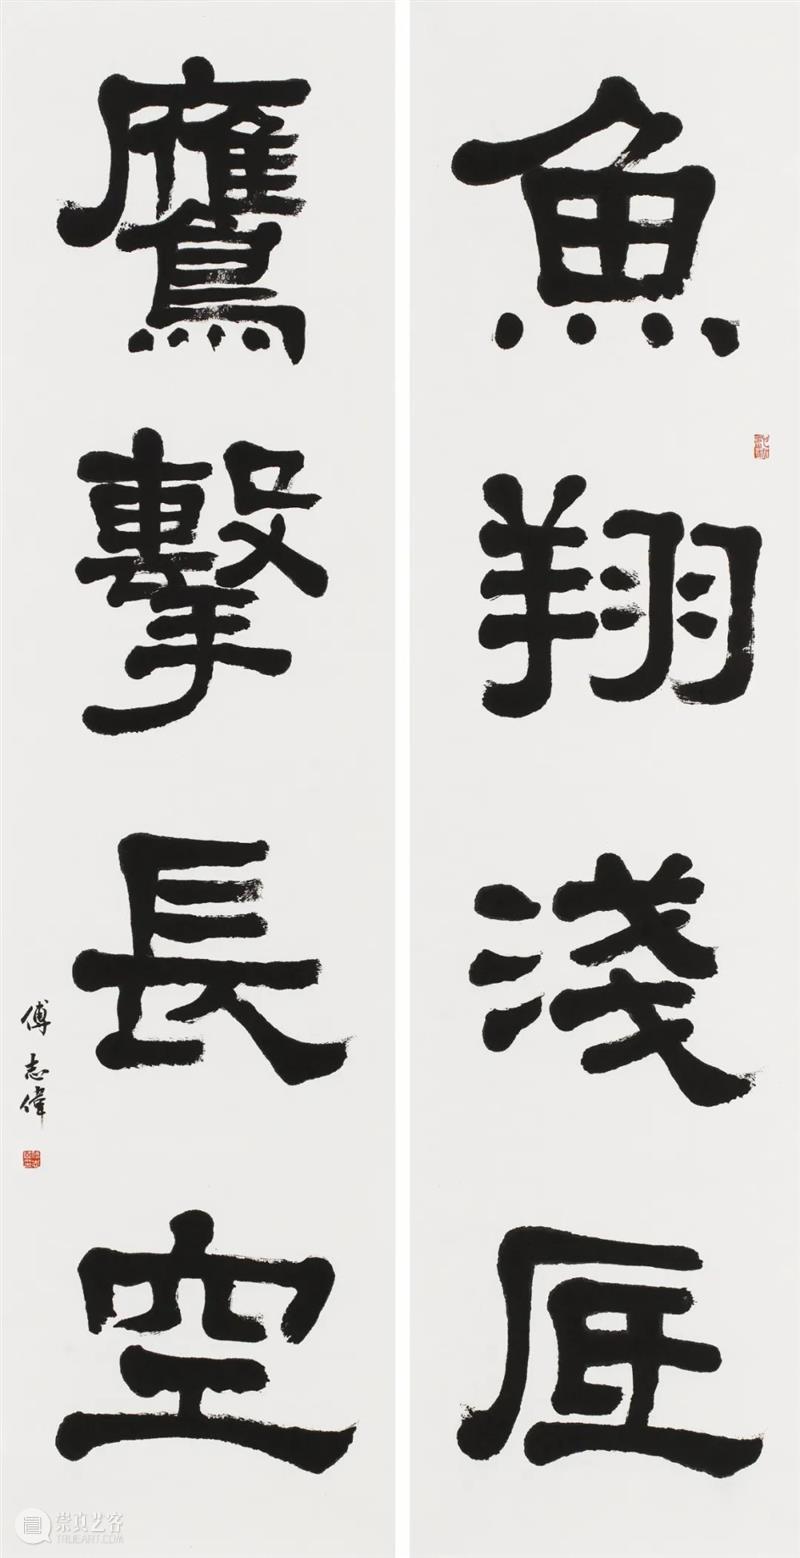 魚翔淺底
鷹擊長空
傅志偉
崇真艺客
WWW.TRUEART.COM